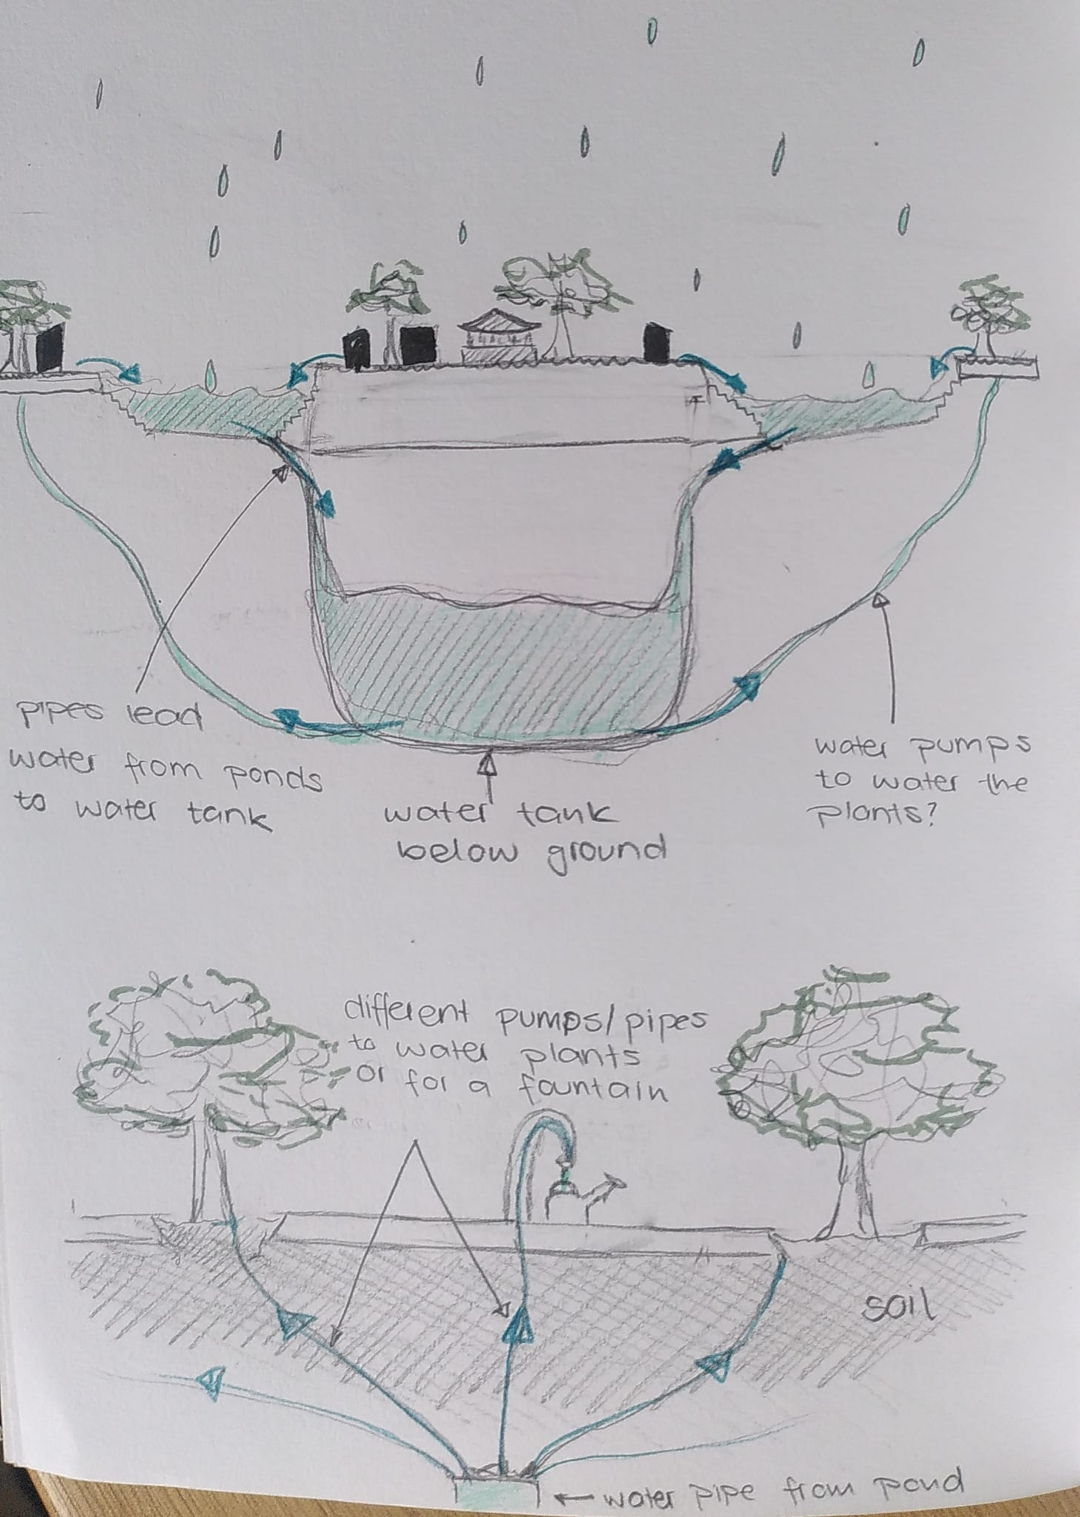 pipes lead
water from ponds
to water tank
water tank
below ground
water pumps
to water the
plants?
different pumps/pipes
to water plants
or for a fountain
soil
water pipe from pond